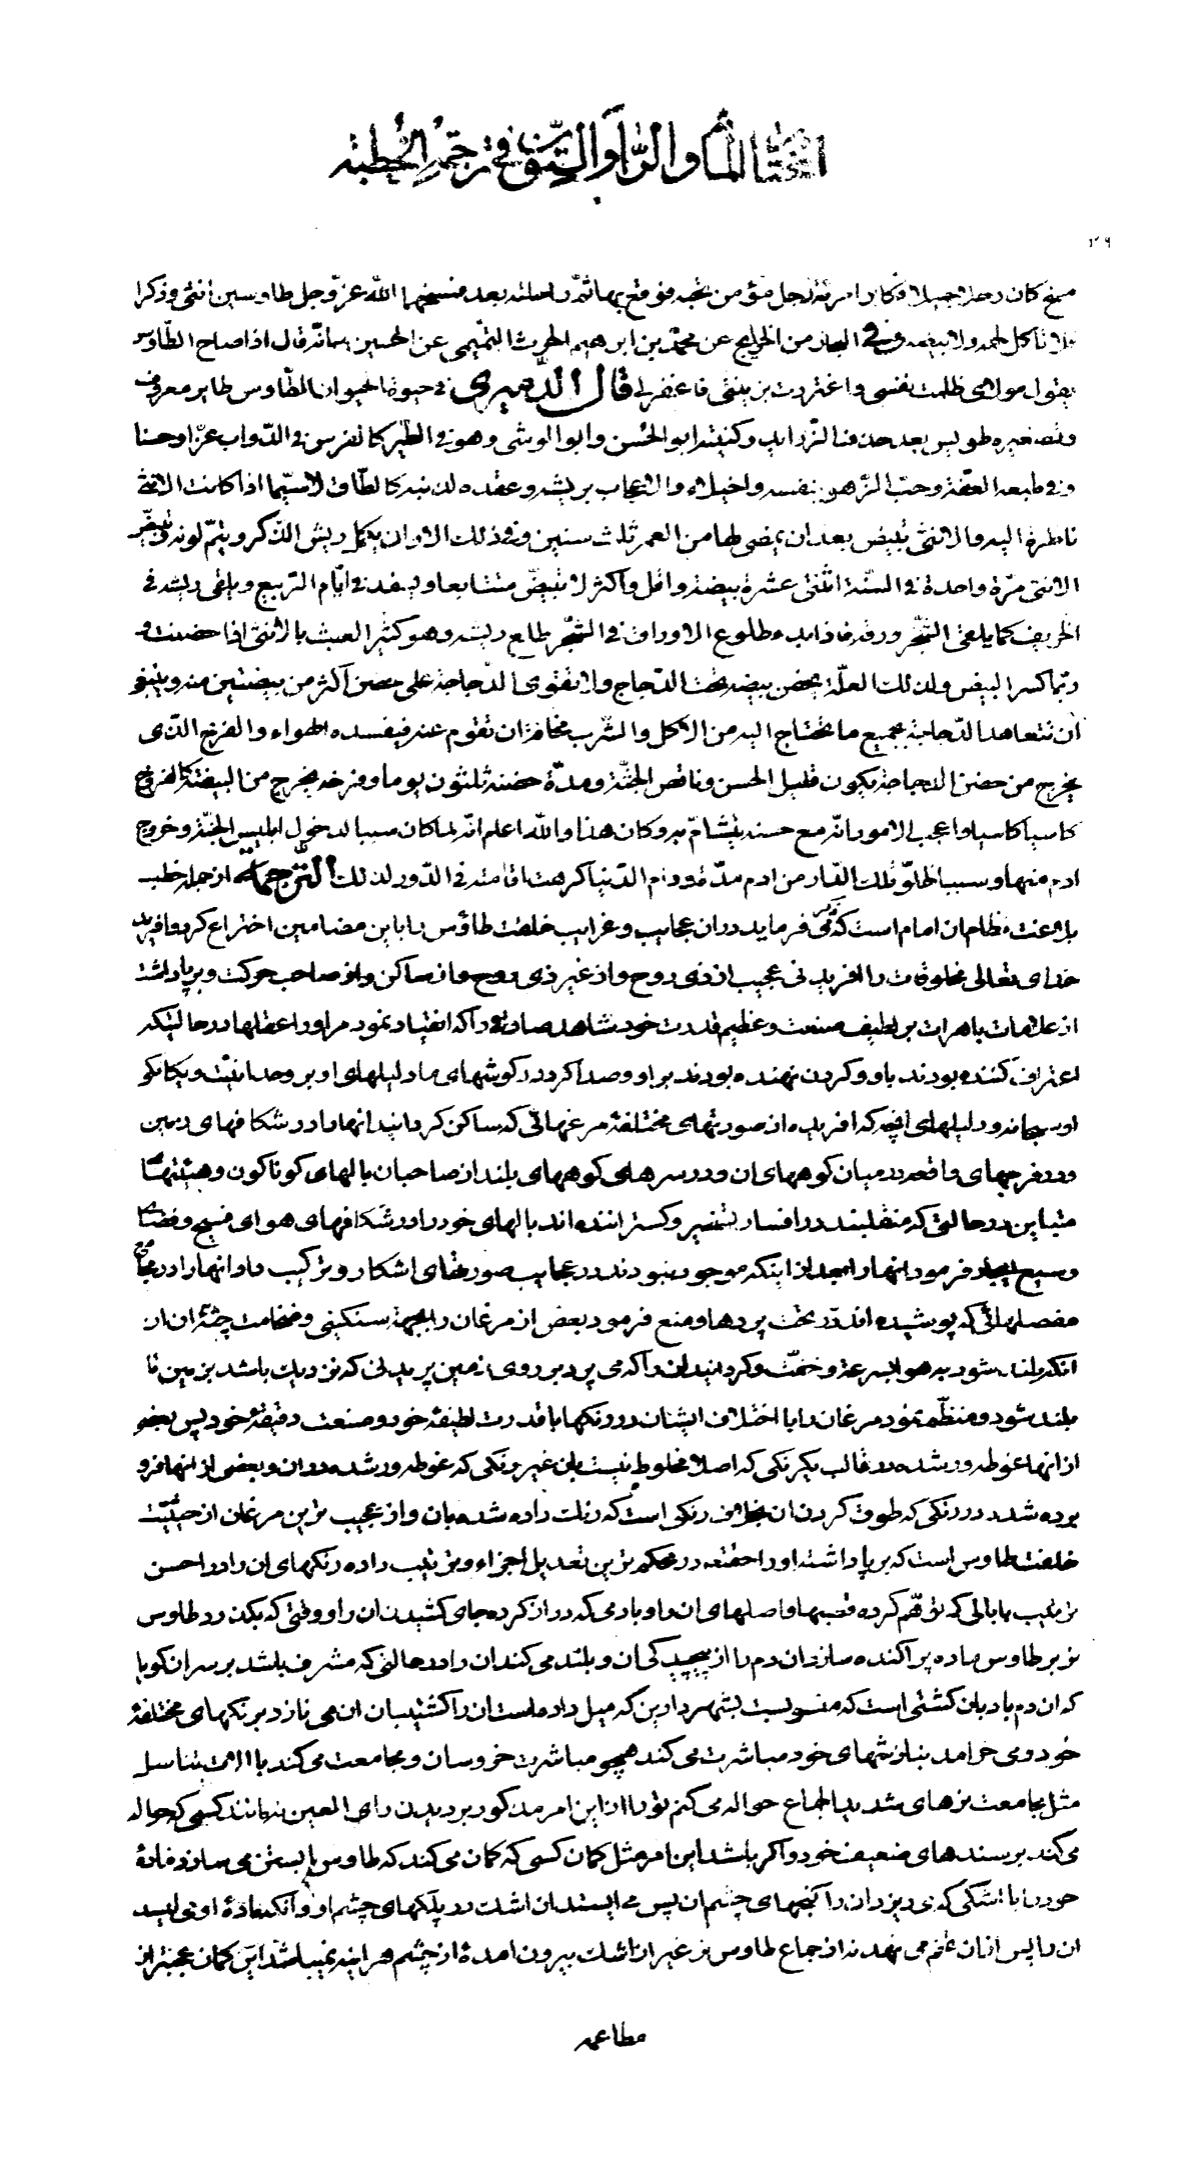 المختار المأة والرابع والستون في ترجمة الخطبة
۲۰۹
مسخ كان رجلا جميلا فكابر امرئة رجل مؤمن تحبه فوقع بها ثم راسلته بعد فمسخهما الله عز وجل طاوسين انثى وذكرا
فلا تاكل لحمه ولا بيضه وفي البحار من الخرايج عن محمد بن ابرهيم الحرث التميمي عن الحسين انه قال اذا صاح الطاوس
يقول مولاى ظلمت نفسى واغتررت بزينتى فاغفر لى قال الدميرى في حيوة الحيوان الطاوس طاير معروف
وتصغيره طويس بعد حذف الزوايد وكنيته ابو الحسن وابو الوشى وهو في الطير كالفرس في الدواب عزا وحسنا
وفي طبعه العفة وحب الزهو بنفسه والخيلاء والاعجاب بريشه وعقده لذنبه كالطاق لا سيما اذا كانت الانثى
ناظرة اليه والانثى تبيض بعد ان يمضى لها من العمر ثلاث سنين وفي ذلك الاوان يكمل ريش الذكر ويتم لونه وتبيض
الانثى مرة واحدة في السنة اثنتى عشرة بيضة واقل واكثر لا تبيض متتابعا ويسفد في ايام الربيع ويلقى ريشه في
الخريف كما يلقى الشجر ورقه فاذا بدء طلوع الاوراق في الشجر طلع ريشه وهو كثير العبث بالانثى اذا حضنت و
ربما كسر البيض ولذلك العلة يحضن بيضه تحت الدجاج ولا تقوى الدجاجة على حضن اكثر من بيضتين منه وينبغى
أن تتعاهد الدجاجة بجميع ما تحتاج اليه من الاكل والشرب مخافة ان تقوم عنه فيفسده الهواء والفرخ الذى
يخرج من حضن الدجاجة يكون قليل الحسن وناقص الجثة ومدة حضنه ثلثون يوما وفرخه يخرج من البيضة كالفروج
كاسيا كاسبا واعجب الامور انه مع حسنه يتشام به وكان هذا والله اعلم انه لما كان سببا لدخول ابليس الجنة وخروج
ادم منها وسببا لخلو تلك الدار من ادم مدة دوام الدنيا كرهت اقامته في الدور لذلك الترجمة از جمله خطب
بلاغت نظام ان امام است كه مى فرمايد در ان عجايب وغرايب خلقت طاوس را باين مضامين اختراع كرد وافريد
خداى تعالى مخلوقات را افريدنى عجيب از ذى روح واز غير ذى روح واز ساكن واز صاحب حركت وبرپا داشت
از علامات باهرات بر لطيف صنعت وعظيم قدرت خود شاهد صادقى را كه انقياد نمود مر او را عقلها در حالتيكه
اعتراف كننده بودند باو وگردن نهنده بودند براو وصدا كرد در گوشهاى ما دليلهاى او بر وحدانيت ويگانگى
او سبحانه ودليلهاى آنچه كه افريده از صورتهاى مختلفه مرغهائى كه ساكن گردانيد انها را در شكافهاى زمين
ودر فرجهاى واقعه در ميان كوههاى ان ودر سرهاى كوههاى بلند از صاحبان بالهاى گوناگون وهيئتهاى
متباين در حالتى كه منقلبند در افسار تسخير وگستراننده اند بالهاى خود را در شكافهاى هواى فسيح وفضاى
وسيع ايجاد فرمود انها را بعد از اينكه موجود نبودند در عجايب صورتهاى اشكار وتركيب داد انها را در مجامع
مفصلهائى كه پوشيده اند در تحت پردها ومنع فرمود بعض از مرغان را بجهة سنگينى وضخامت جثه ان از
انكه بلند شود به هوا بسرعة وخفت وگردانيد ان را كه مى پرد بر روى زمين پريدنى كه نزديك باشد بزمين تا
بلند شود ومنظم نمود مرغان را با اختلاف ايشان در رنگها با قدرت لطيفه خود وصنعت دقيقه خود پس بعضى
از انها غوطه ور شده در قالب يكرنگى كه اصلا مخلوط نيست بان غير رنگى كه غوطه ور شده در ان وبعضى از انها فرو
برده شده در رنگى كه طوق كردن ان بخلاف رنگى است كه رنك داده شده بان واز عجيب ترين مرغان از حيثيت
خلقت طاوس است كه برپا داشته او را حقتعه در محكم ترين تعديل اجزاء وترتيب داده رنگهاى ان را در احسن
ترتيب با بالى كه فراهم كرده قصبها واصلهاى ان را وبا دمى كه دراز كرده جاى كشيدن ان را ووقتى كه بگذرد طاوس
نر بر طاوس ماده پراكنده سازد ان دم را از پيچيدگى ان وبلند مى كند ان را در حالتى كه مشرف باشد بر سر ان گويا
كه ان دم بادبان كشتى است كه منسوبست بشهر دارين كه ميل داده است ان را كشتيبان ان مى نازد برنگهاى مختلفه
خود ومى خرامد بنازشهاى خود مباشرت مى كند همچو مباشرت خروسان ومجامعت مى كند با الات تناسل
مثل مجامعت نرهاى شديد الجماع حواله مى كنم تو را از اين امر مذكور بر ديدن راى العين نه مانند كسى كه حواله
مى كند بر سندهاى ضعيف خود واگر باشد اين امر مثل گمان كسى كه گمان مى كند كه طاوس ابستن مى سازد مادۀ
خود را با اشكى كه مى ريزد ان را گنجهاى چشم ان پس مى ايستد ان اشك در پلكهاى چشم او وآنكه مادۀ او مى ليسد
ان را پس از ان تخم مى نهد نه از جماع طاوس نر غير از اشك بيرون امدۀ از چشم هر اينه نمى باشد اين گمان عجبتر از
مطاعمه